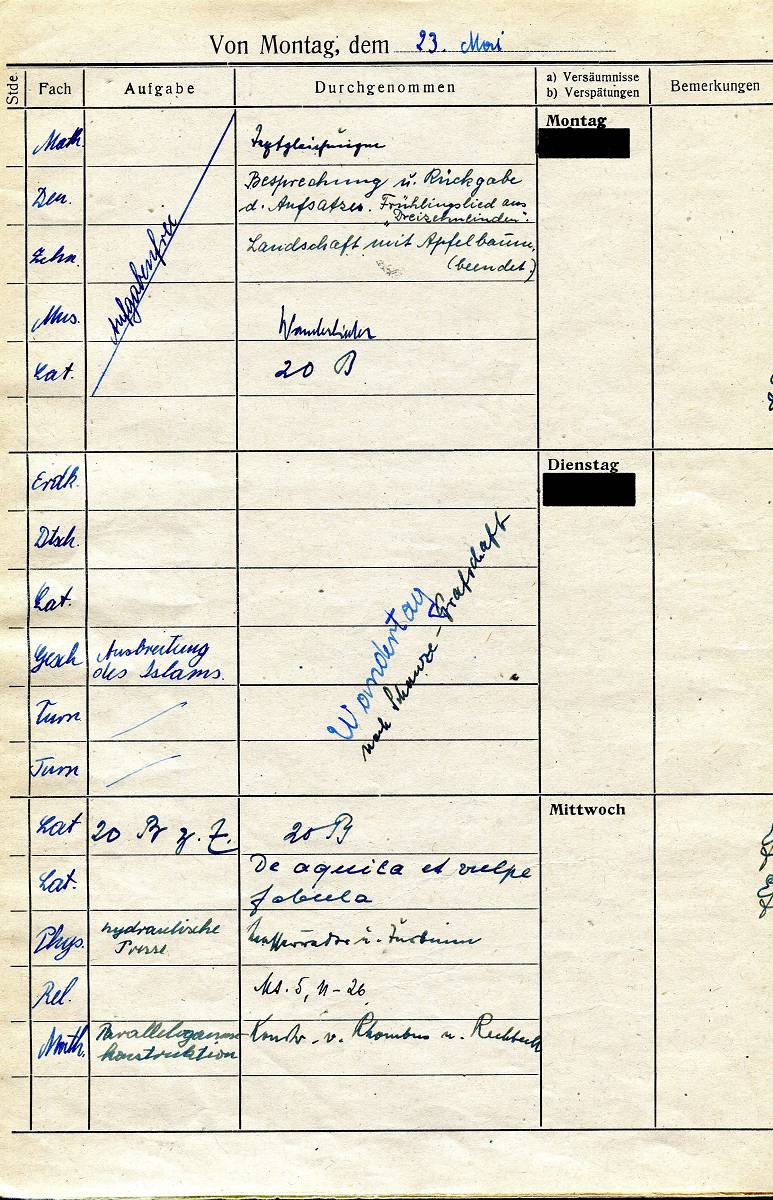 Von Montag, dem 23. Mai
Stde. Fach Aufgabe Durchgenommen a) Versäumnisse Bemerkungen
b) Verspätungen
Montag
Math. Textgleichungen
Deu. Besprechung u. Rückgabe
d. Aufsatzes. Frühlingslied aus
"Dreizehnlinden".
Zchn. Landschaft mit Apfelbäumen
(beendet)
Aufgabenfrei
Mus. Wanderlieder
Lat. 20 B
Dienstag
Erdk.
Dtsch.
Lat.
Wandertag
nach Schanze - Grafschaft
Gesch Ausbreitung
des Islams.
Turn
Turn
Mittwoch
Lat 20 B z. T. 20 B
Lat. De aquila et vulpe
fabula
Phys. hydraulische Wasserräder u. Turbinen
Presse
Rel. Mt. 5, 11-26
Math. Parallelogramm- Konstr. v. Rhombus u. Rechteck
konstruktion